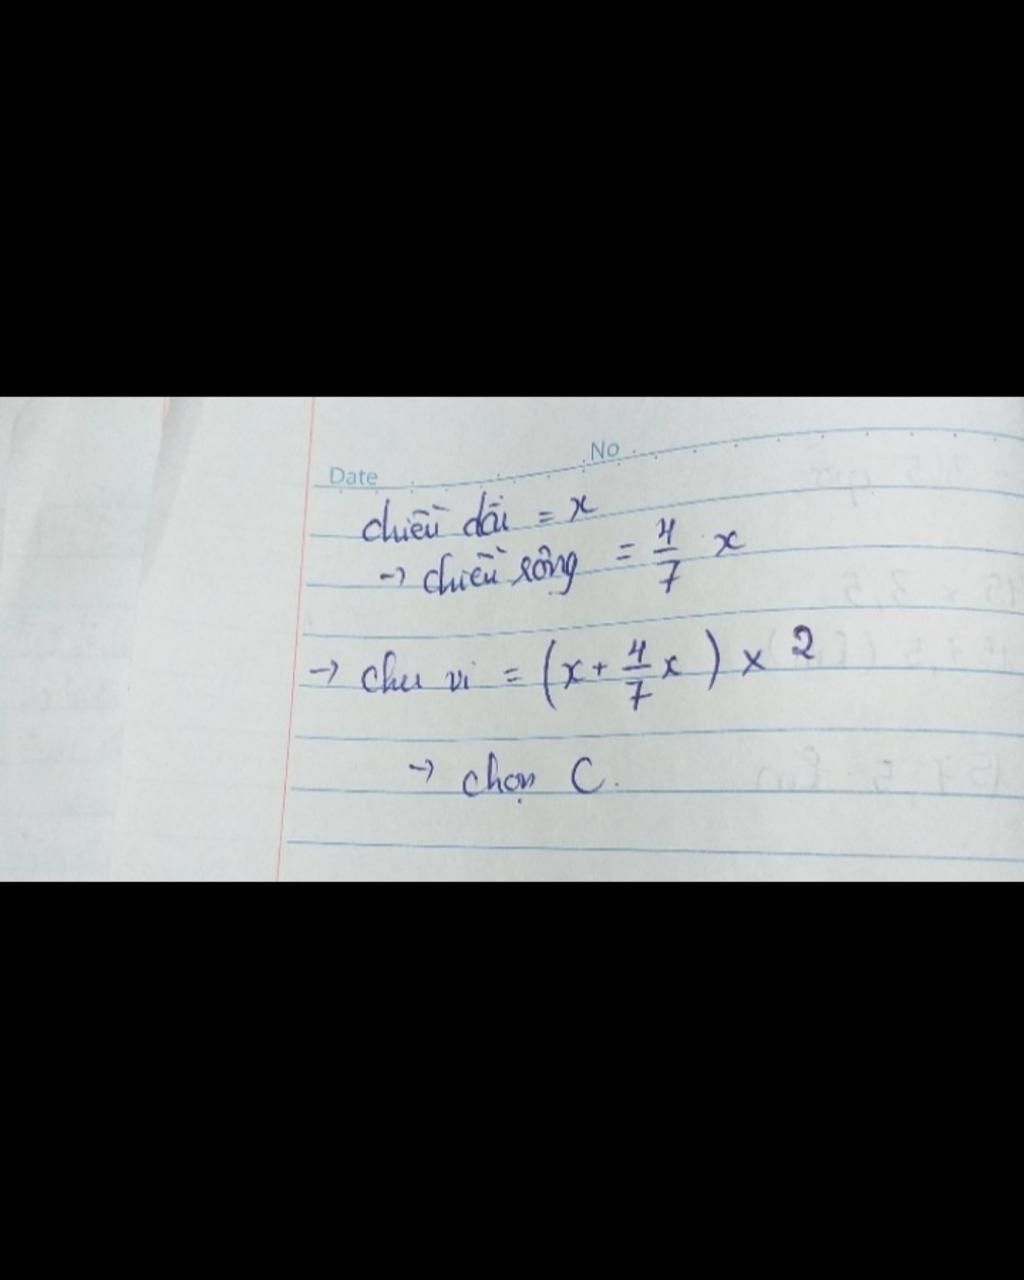 No
Date
chiều dài = x
→ chiều rộng = 4/7 x
→ chu vi = (x + 4/7 x) × 2
→ chọn C.